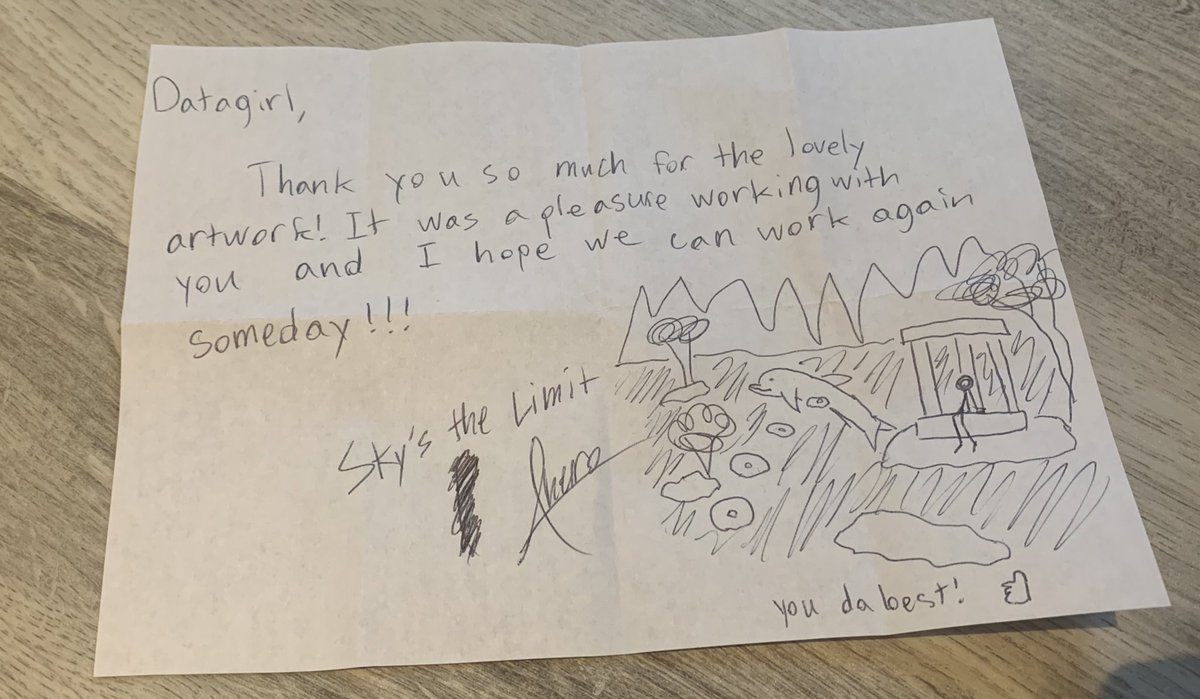 Datagirl,
Thank you so much for the lovely
artwork! It was a pleasure working with
you and I hope we can work again
someday!!!
Sky's the Limit
you da best!